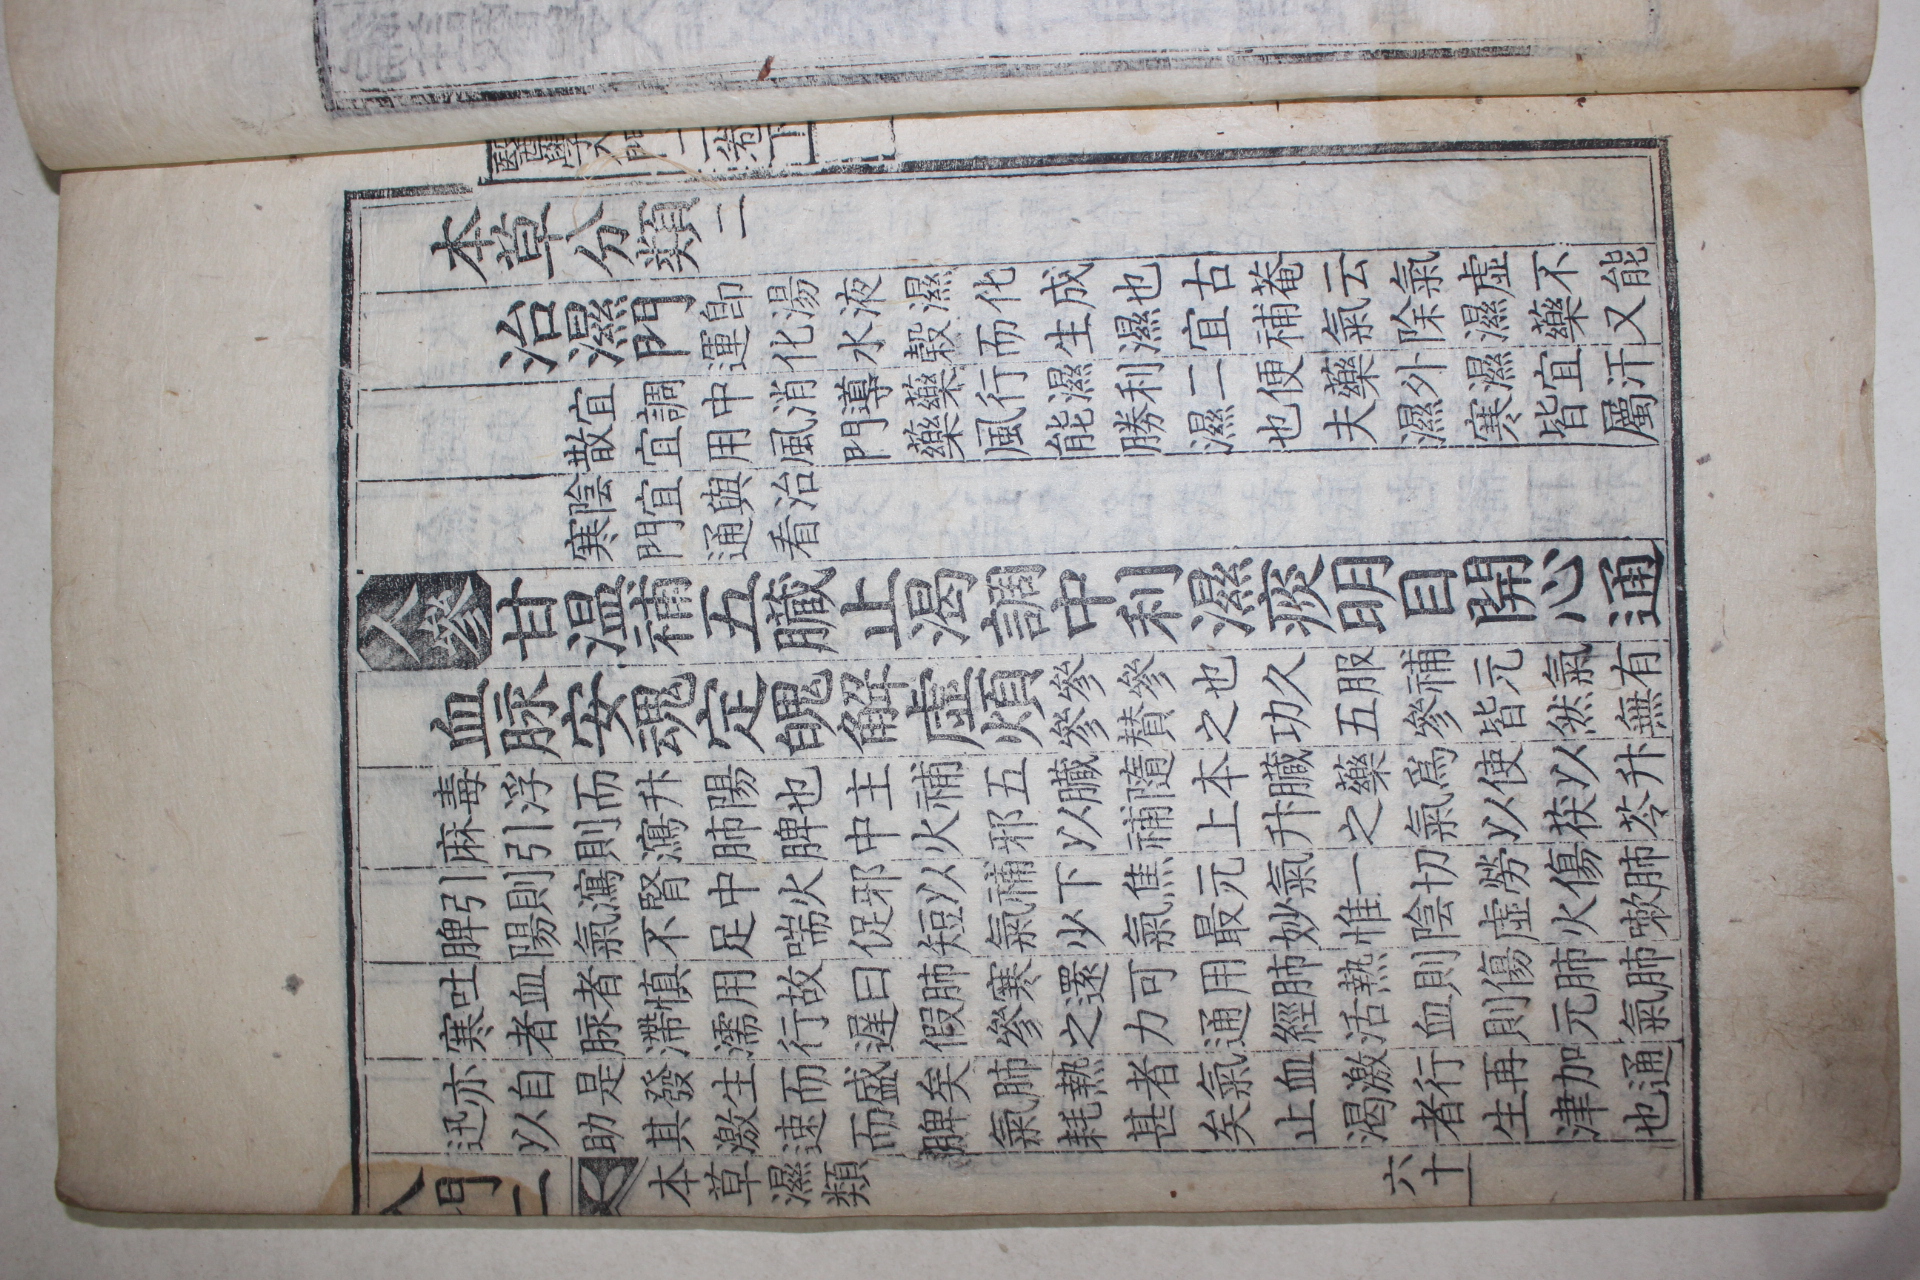 醫學入門二卷下
本草分類二
治濕門
卽湯液濕化成也古菴云氣虛不能
運化水穀而生濕宜補氣除濕藥又
宜調中消導藥行濕利二便藥外濕宜汗
散宜用風門藥風能勝濕也夫濕寒皆屬
陰宜與治
寒門通看
人參甘溫補五臟止渴調中利濕痰明目開心通
血脉安魂定魄解虛煩
參參也久服補元氣有
參贊之功五參皆然無
毒浮而升陽也主補五臟隨本臟藥爲使以升
麻引則瀉肺脾中火邪以補上升之氣以茯苓
引則瀉腎中火邪以補下焦元氣一切勞傷肺
脾陽氣不足喘促短氣少氣最妙惟陰虛火嗽
吐血者愼用故曰肺寒還可用肺熱則傷肺肺
寒者脉滯濡行遲假參之力通經活血則元氣
亦自是發生而盛矣肺熱者氣血激行再加通
迅以助其激速而脾氣耗甚矣止渴者生津也
入門二
本草濕類
六十